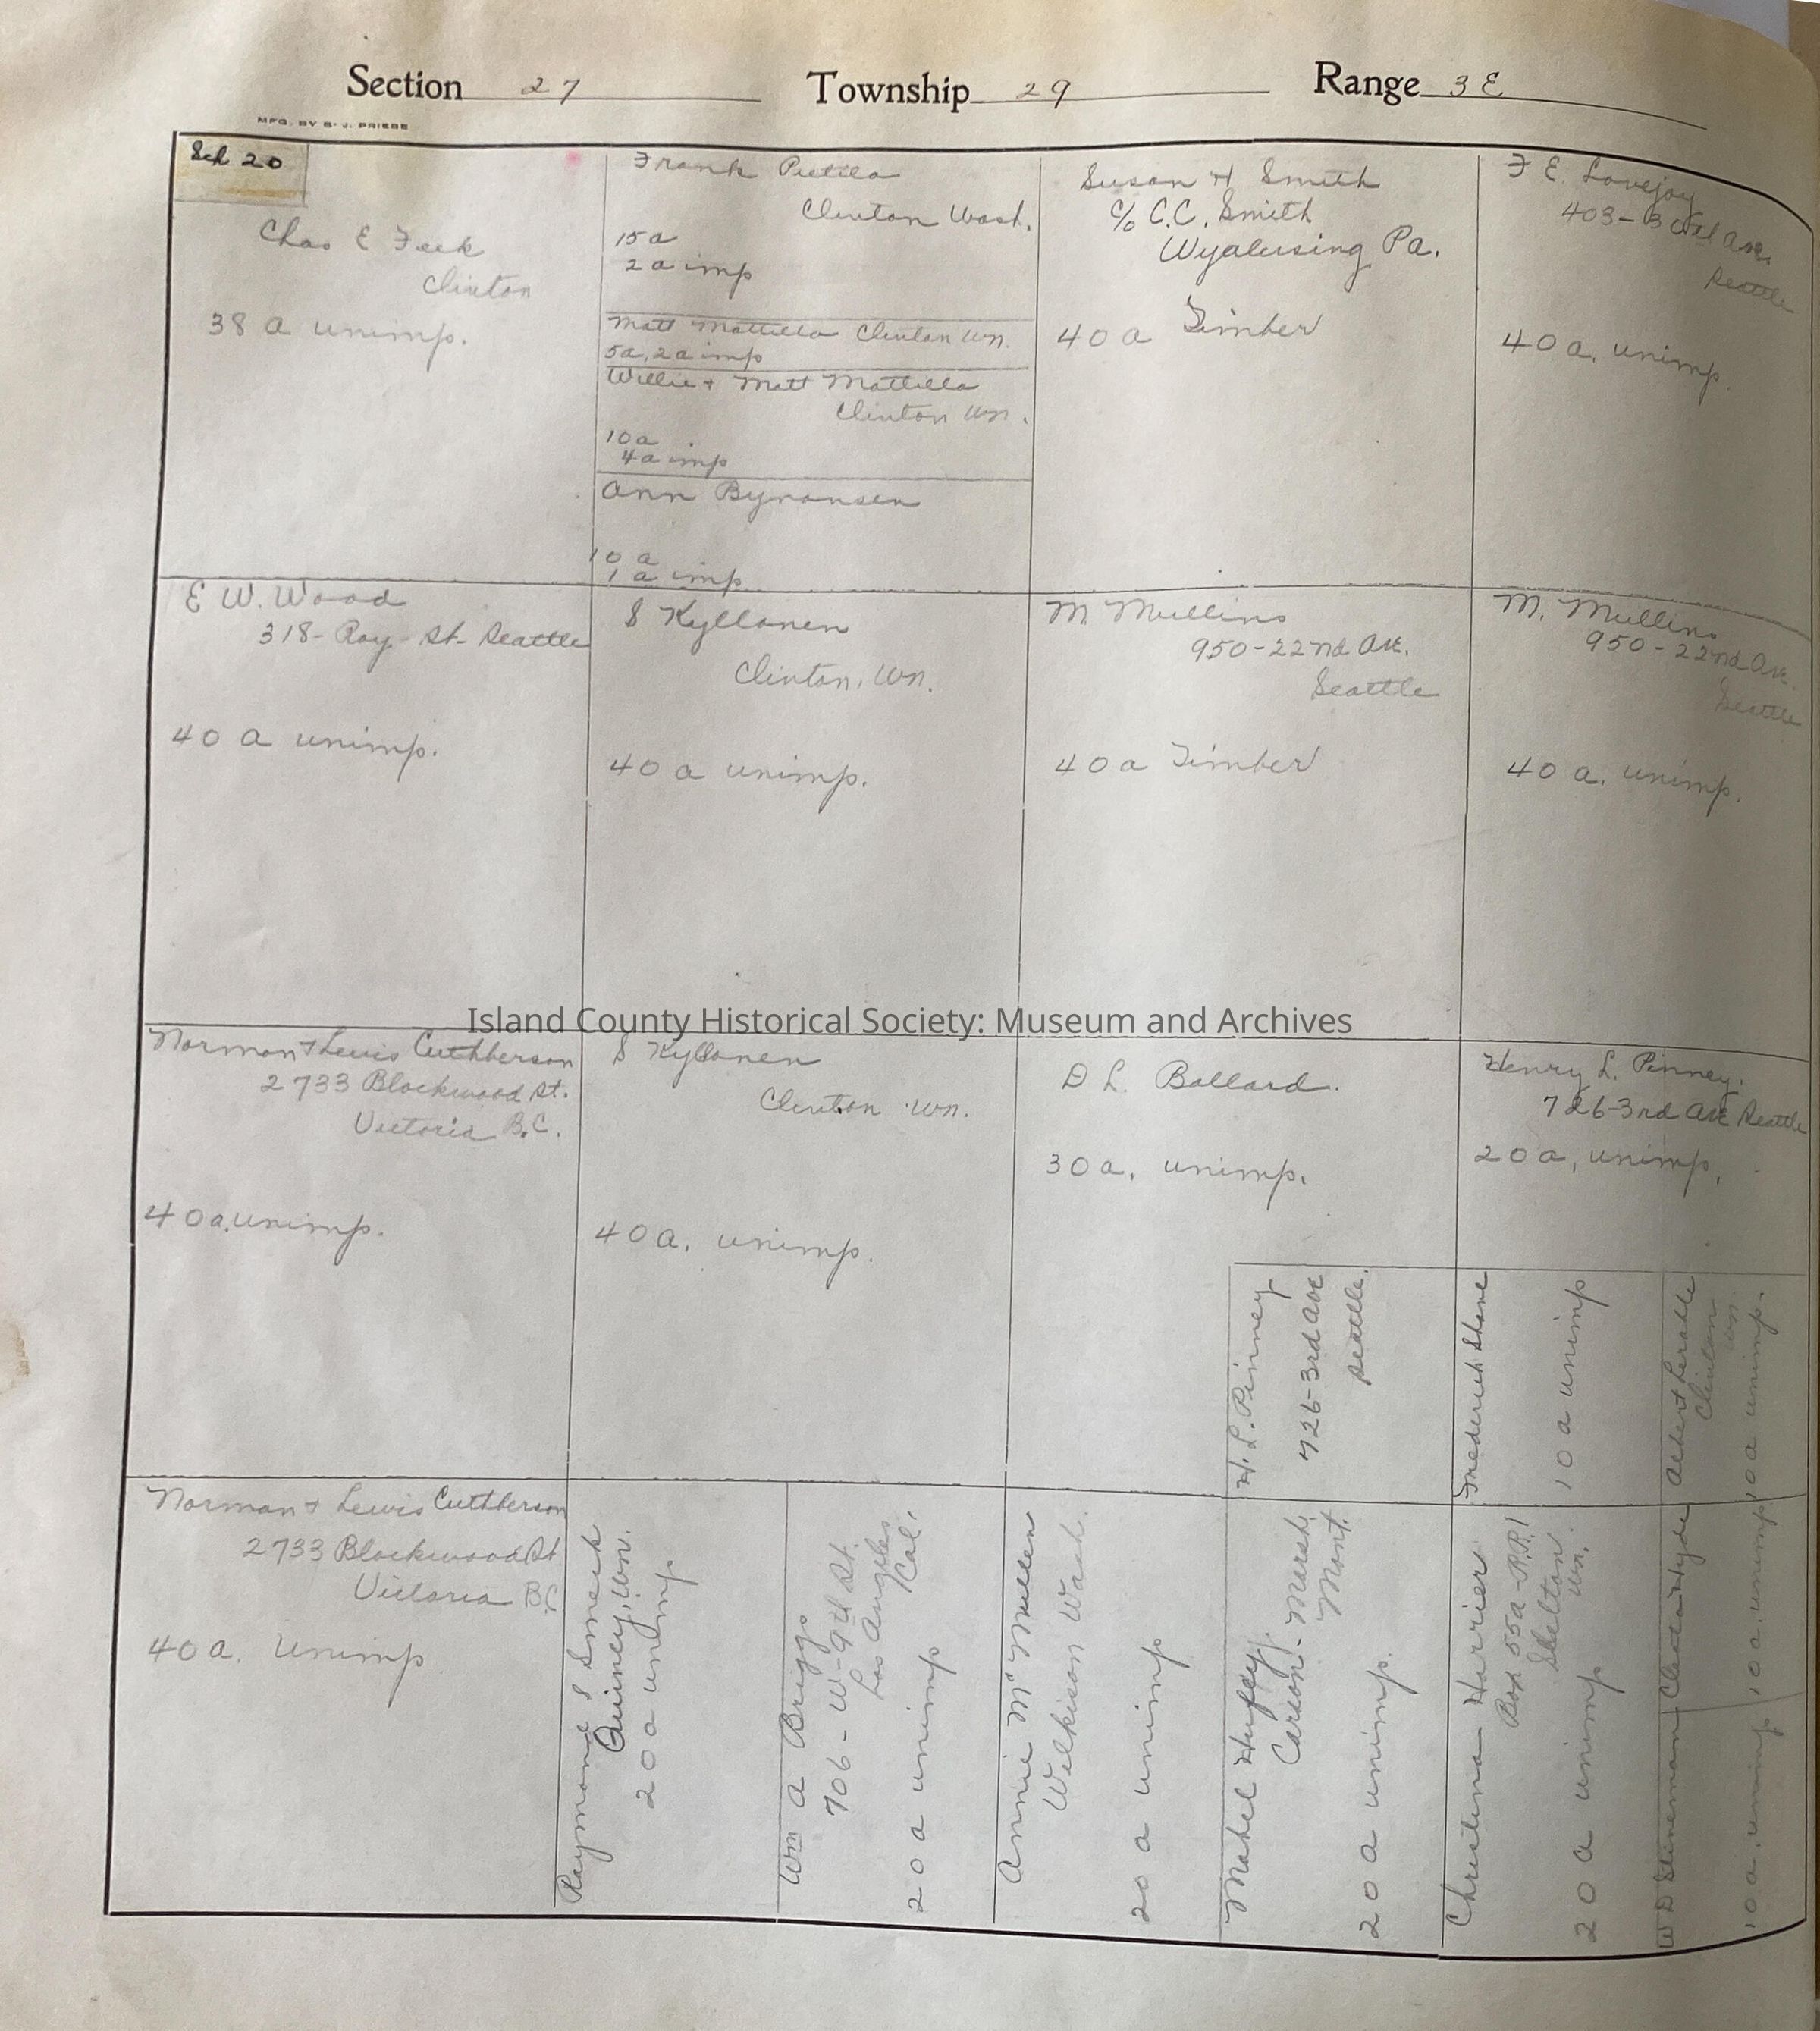 Section 27 Township 29 Range 3 E
MFG. BY S. J. PRIEBE
Sch 20
Chas E Feek
Clinton
38 a unimp.
Frank Pietila
Clinton Wash.
15 a
2 a imp
Matt Mattilla Clinton Wn.
5a, 2a imp
Willie + Matt Mattilla
Clinton Wn.
10 a
4 a imp
Ann Bynonsen
10 a
1 a imp
Susan H Smith
c/o C.C. Smith
Wyalusing Pa.
40 a Timber
F E. Lovejoy
403-30th Ave.
Seattle
40 a. unimp.
E W. Wood
318- Roy- St- Seattle
40 a unimp.
S Kyllonen
Clinton, Wn.
40 a unimp.
M Mullins
950-22nd Ave.
Seattle
40 a Timber
M. Mullins
950-22nd Ave.
Seattle
40 a. unimp.
Norman + Lewis Cuthberson
2733 Blackwood St.
Victoria B.C.
40 a. unimp.
S Kyllonen
Clinton Wn.
40 a. unimp.
D L. Ballard.
30 a. unimp.
H. L. Pinney
726-3rd Ave
Seattle.
Henry L. Pinney.
726-3rd Ave Seattle
20 a, unimp.
Frederick Shane
10 a unimp
Albert
Clinton
Wn.
10 a unimp.
Norman + Lewis Cuthberson
2733 Blackwood St
Victoria B.C.
40 a. Unimp
Raymond S Smack
Quincy, Wn.
20 a unimp
Wm a Briggs
706 - W-9th St.
Los Angeles
Cal.
20 a unimp
Annie Mc Mullen
Wilkison Wash.
20 a unimp
Mabel Huffey.
Carson - Marsh,
Mont.
20 a unimp.
Christina Harrier
Box 55a-R.R.1
Shelton
Wn.
20 a unimp
Cleata Hyde
10 a. unimp
W D Stineman
10 a. unimp
Island County Historical Society: Museum and Archives